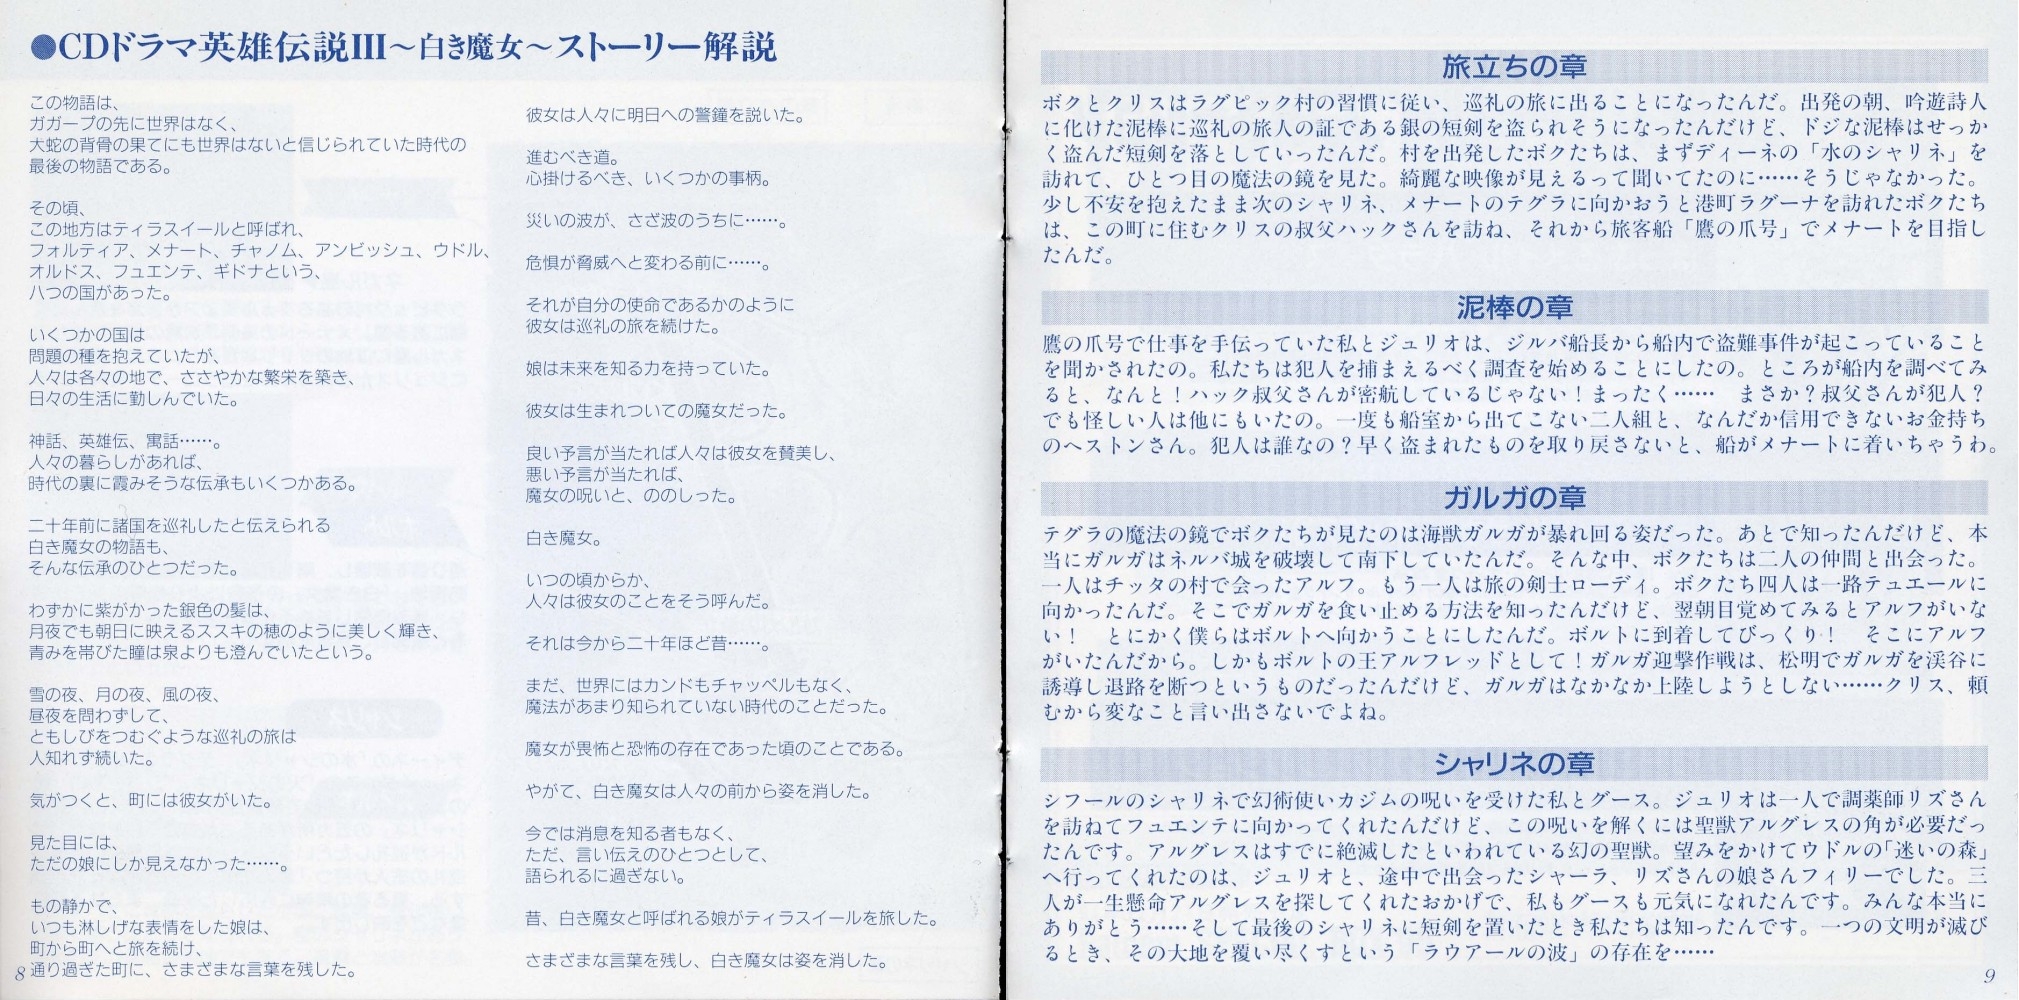 ●CDドラマ英雄伝説III～白き魔女～ストーリー解説
この物語は、
ガガープの先に世界はなく、
大蛇の背骨の果てにも世界はないと信じられていた時代の
最後の物語である。
その頃、
この地方はティラスイールと呼ばれ、
フォルティア、メナート、チャノム、アンビッシュ、ウドル、
オルドス、フュエンテ、ギドナという、
八つの国があった。
いくつかの国は
問題の種を抱えていたが、
人々は各々の地で、ささやかな繁栄を築き、
日々の生活に勤しんでいた。
神話、英雄伝、寓話……。
人々の暮らしがあれば、
時代の裏に霞みそうな伝承もいくつかある。
二十年前に諸国を巡礼したと伝えられる
白き魔女の物語も、
そんな伝承のひとつだった。
わずかに紫がかった銀色の髪は、
月夜でも朝日に映えるススキの穂のように美しく輝き、
青みを帯びた瞳は泉よりも澄んでいたという。
雪の夜、月の夜、風の夜、
昼夜を問わずして、
ともしびをつむぐような巡礼の旅は
人知れず続いた。
気がつくと、町には彼女がいた。
見た目には、
ただの娘にしか見えなかった……。
もの静かで、
いつも淋しげな表情をした娘は、
町から町へと旅を続け、
通り過ぎた町に、さまざまな言葉を残した。
8
彼女は人々に明日への警鐘を説いた。
進むべき道。
心掛けるべき、いくつかの事柄。
災いの波が、さざ波のうちに……。
危惧が脅威へと変わる前に……。
それが自分の使命であるかのように
彼女は巡礼の旅を続けた。
娘は未来を知る力を持っていた。
彼女は生まれついての魔女だった。
良い予言が当たれば人々は彼女を賛美し、
悪い予言が当たれば、
魔女の呪いと、ののしった。
白き魔女。
いつの頃からか、
人々は彼女のことをそう呼んだ。
それは今から二十年ほど昔……。
まだ、世界にはカンドもチャッペルもなく、
魔法があまり知られていない時代のことだった。
魔女が畏怖と恐怖の存在であった頃のことである。
やがて、白き魔女は人々の前から姿を消した。
今では消息を知る者もなく、
ただ、言い伝えのひとつとして、
語られるに過ぎない。
昔、白き魔女と呼ばれる娘がティラスイールを旅した。
さまざまな言葉を残し、白き魔女は姿を消した。
旅立ちの章
ボクとクリスはラグピック村の習慣に従い、巡礼の旅に出ることになったんだ。出発の朝、吟遊詩人
に化けた泥棒に巡礼の旅人の証である銀の短剣を盗られそうになったんだけど、ドジな泥棒はせっか
く盗んだ短剣を落としていったんだ。村を出発したボクたちは、まずディーネの「水のシャリネ」を
訪れて、ひとつ目の魔法の鏡を見た。綺麗な映像が見えるって聞いてたのに……そうじゃなかった。
少し不安を抱えたまま次のシャリネ、メナートのテグラに向かおうと港町ラグーナを訪れたボクたち
は、この町に住むクリスの叔父ハックさんを訪ね、それから旅客船「鷹の爪号」でメナートを目指し
たんだ。
泥棒の章
鷹の爪号で仕事を手伝っていた私とジュリオは、ジルバ船長から船内で盗難事件が起こっていること
を聞かされたの。私たちは犯人を捕まえるべく調査を始めることにしたの。ところが船内を調べてみ
ると、なんと！ハック叔父さんが密航しているじゃない！まったく……　まさか？叔父さんが犯人？
でも怪しい人は他にもいたの。一度も船室から出てこない二人組と、なんだか信用できないお金持ち
のヘストンさん。犯人は誰なの？早く盗まれたものを取り戻さないと、船がメナートに着いちゃうわ。
ガルガの章
テグラの魔法の鏡でボクたちが見たのは海獣ガルガが暴れ回る姿だった。あとで知ったんだけど、本
当にガルガはネルバ城を破壊して南下していたんだ。そんな中、ボクたちは二人の仲間と出会った。
一人はチッタの村で会ったアルフ。もう一人は旅の剣士ローディ。ボクたち四人は一路テュエールに
向かったんだ。そこでガルガを食い止める方法を知ったんだけど、翌朝目覚めてみるとアルフがいな
い！　とにかく僕らはボルトへ向かうことにしたんだ。ボルトに到着してびっくり！　そこにアルフ
がいたんだから。しかもボルトの王アルフレッドとして！ガルガ迎撃作戦は、松明でガルガを渓谷に
誘導し退路を断つというものだったんだけど、ガルガはなかなか上陸しようとしない……クリス、頼
むから変なこと言い出さないでよね。
シャリネの章
シフールのシャリネで幻術使いカジムの呪いを受けた私とグース。ジュリオは一人で調薬師リズさん
を訪ねてフュエンテに向かってくれたんだけど、この呪いを解くには聖獣アルグレスの角が必要だっ
たんです。アルグレスはすでに絶滅したといわれている幻の聖獣。望みをかけてウドルの「迷いの森」
へ行ってくれたのは、ジュリオと、途中で出会ったシャーラ、リズさんの娘さんフィリーでした。三
人が一生懸命アルグレスを探してくれたおかげで、私もグースも元気になれたんです。みんな本当に
ありがとう……そして最後のシャリネに短剣を置いたとき私たちは知ったんです。一つの文明が滅び
るとき、その大地を覆い尽くすという「ラウアールの波」の存在を……
9